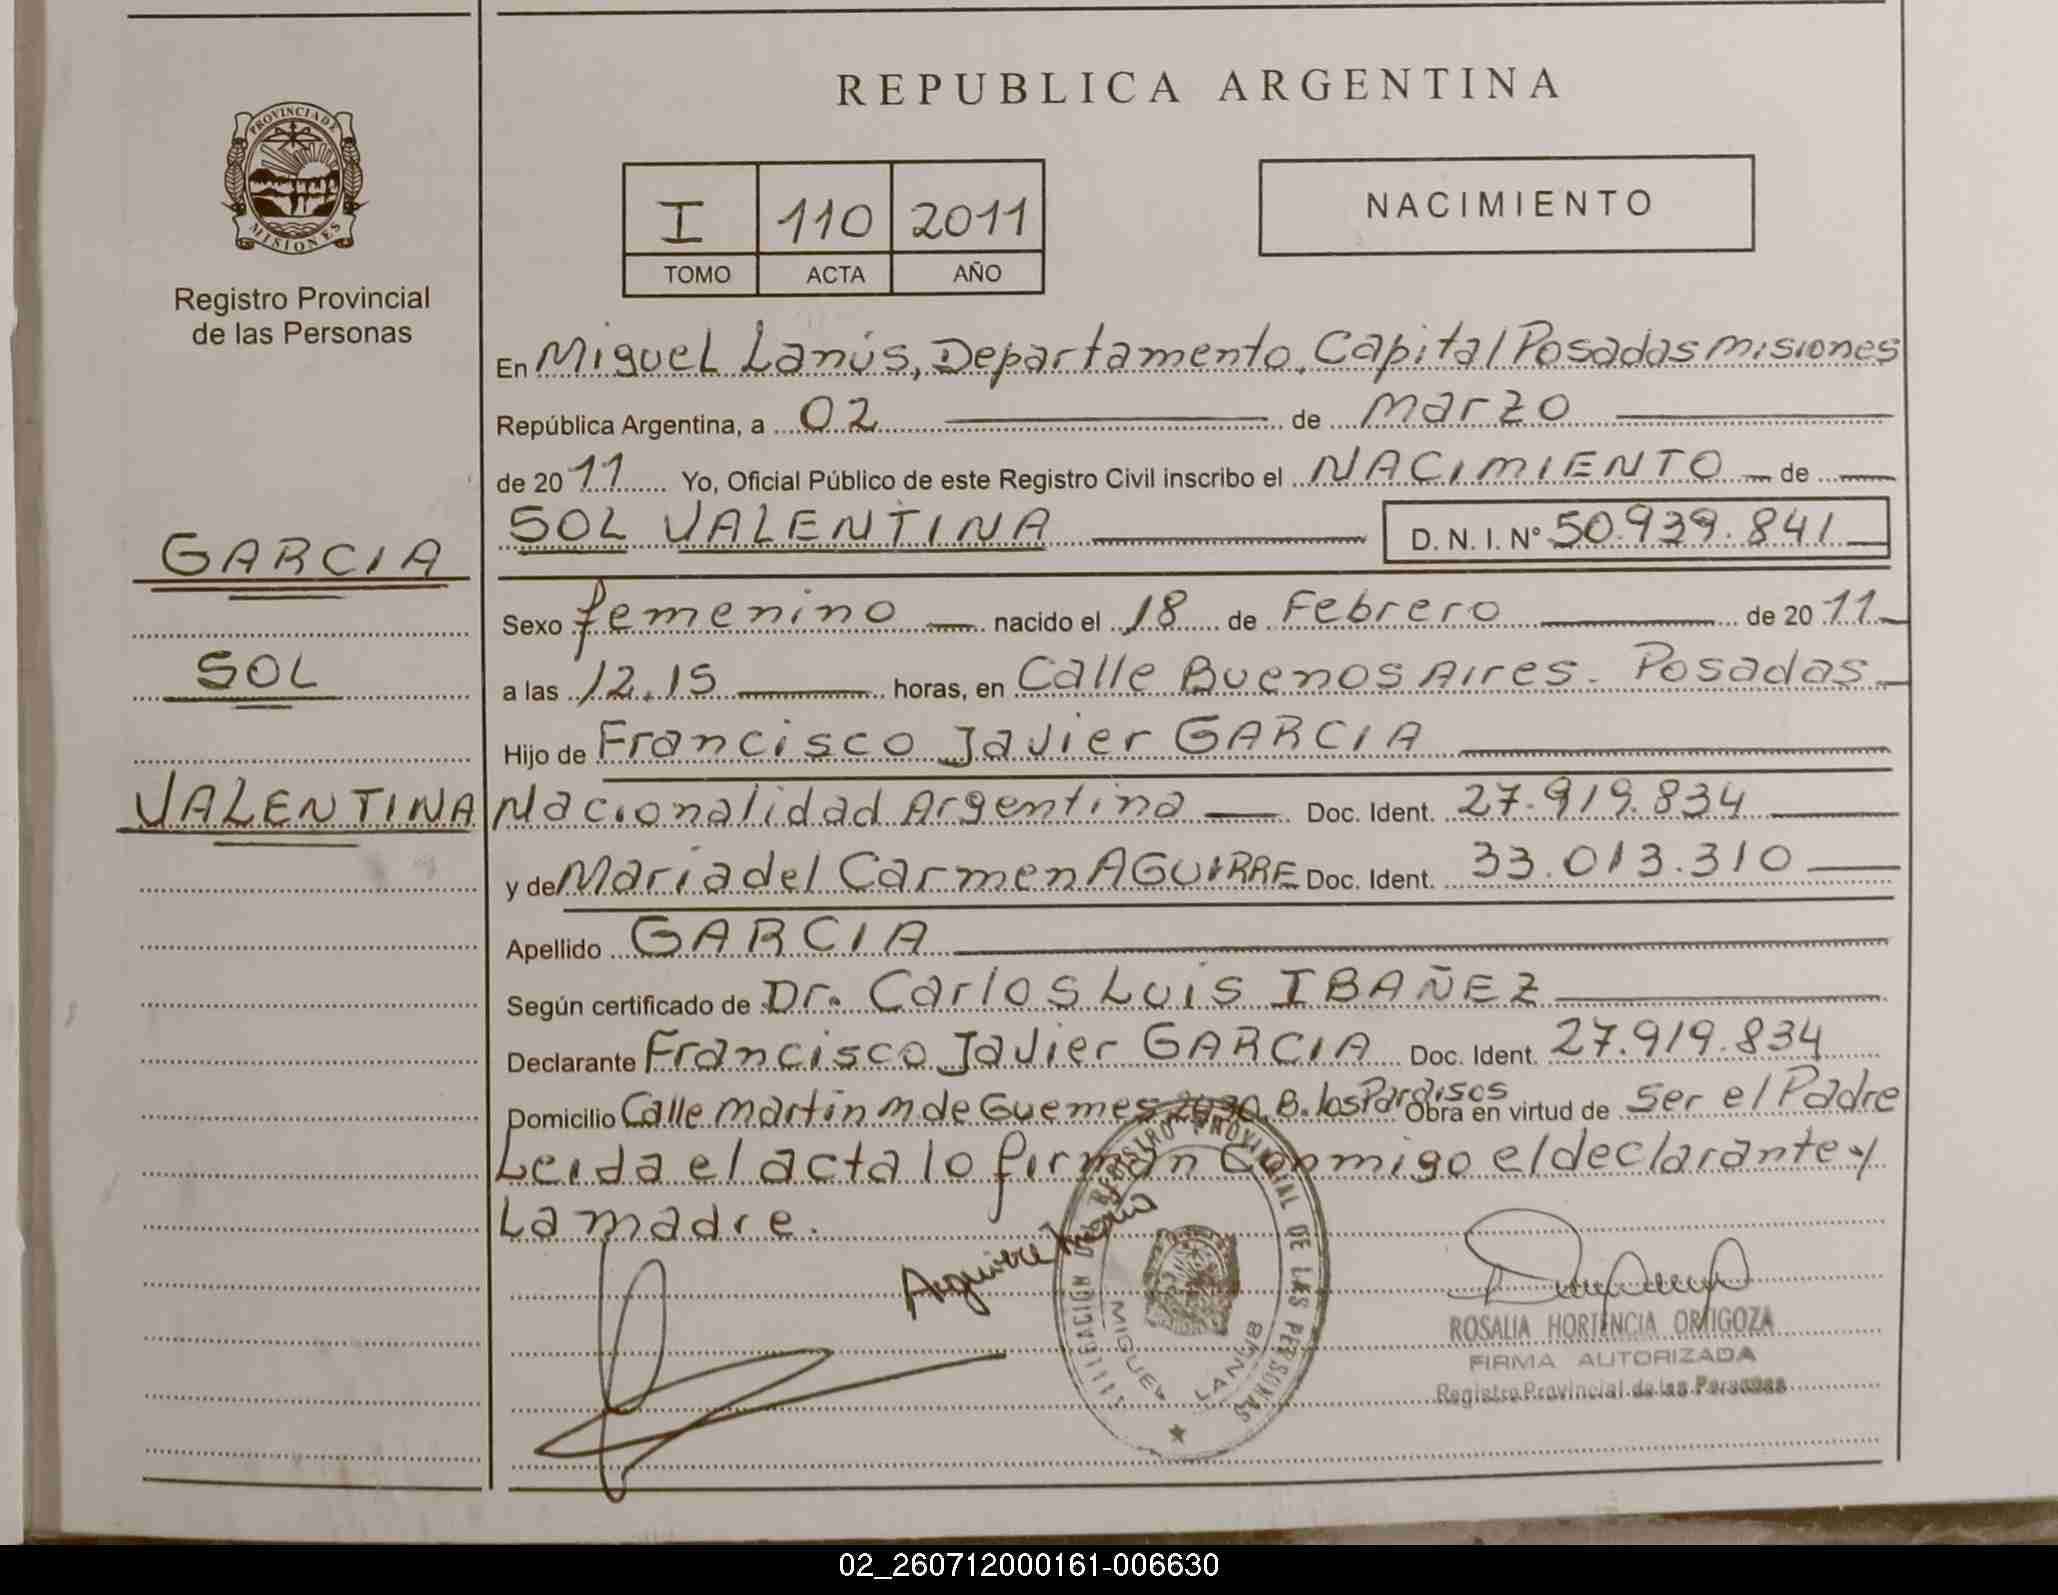 REPUBLICA ARGENTINA
PROVINCIA DE MISIONES
Registro Provincial
de las Personas
I 110 2011
TOMO ACTA AÑO
NACIMIENTO
GARCIA
SOL
VALENTINA
En Miguel Lanús, Departamento. Capital Posadas Misiones
República Argentina, a 02 de Marzo
de 2011 Yo, Oficial Público de este Registro Civil inscribo el NACIMIENTO de
SOL VALENTINA D. N. I. N° 50.939.841
Sexo femenino nacido el 18 de Febrero de 2011
a las 12.15 horas, en Calle Buenos Aires - Posadas
Hijo de Francisco Javier GARCIA
Nacionalidad Argentina Doc. Ident. 27.919.834
y de Maria del Carmen AGUIRRE Doc. Ident. 33.013.310
Apellido GARCIA
Según certificado de Dr. Carlos Luis IBAÑEZ
Declarante Francisco Javier GARCIA Doc. Ident. 27.919.834
Domicilio Calle Martin M de Guemes B. los Paraisos Obra en virtud de Ser el Padre
Leida el acta lo firman Conmigo el declarante y
La madre.
Aguirre Maria
REGISTRO PROVINCIAL DE LAS PERSONAS
MIGUEL LANUS
ROSALIA HORTENCIA ORTIGOZA
FIRMA AUTORIZADA
Registro Provincial de las Personas
02_260712000161-006630